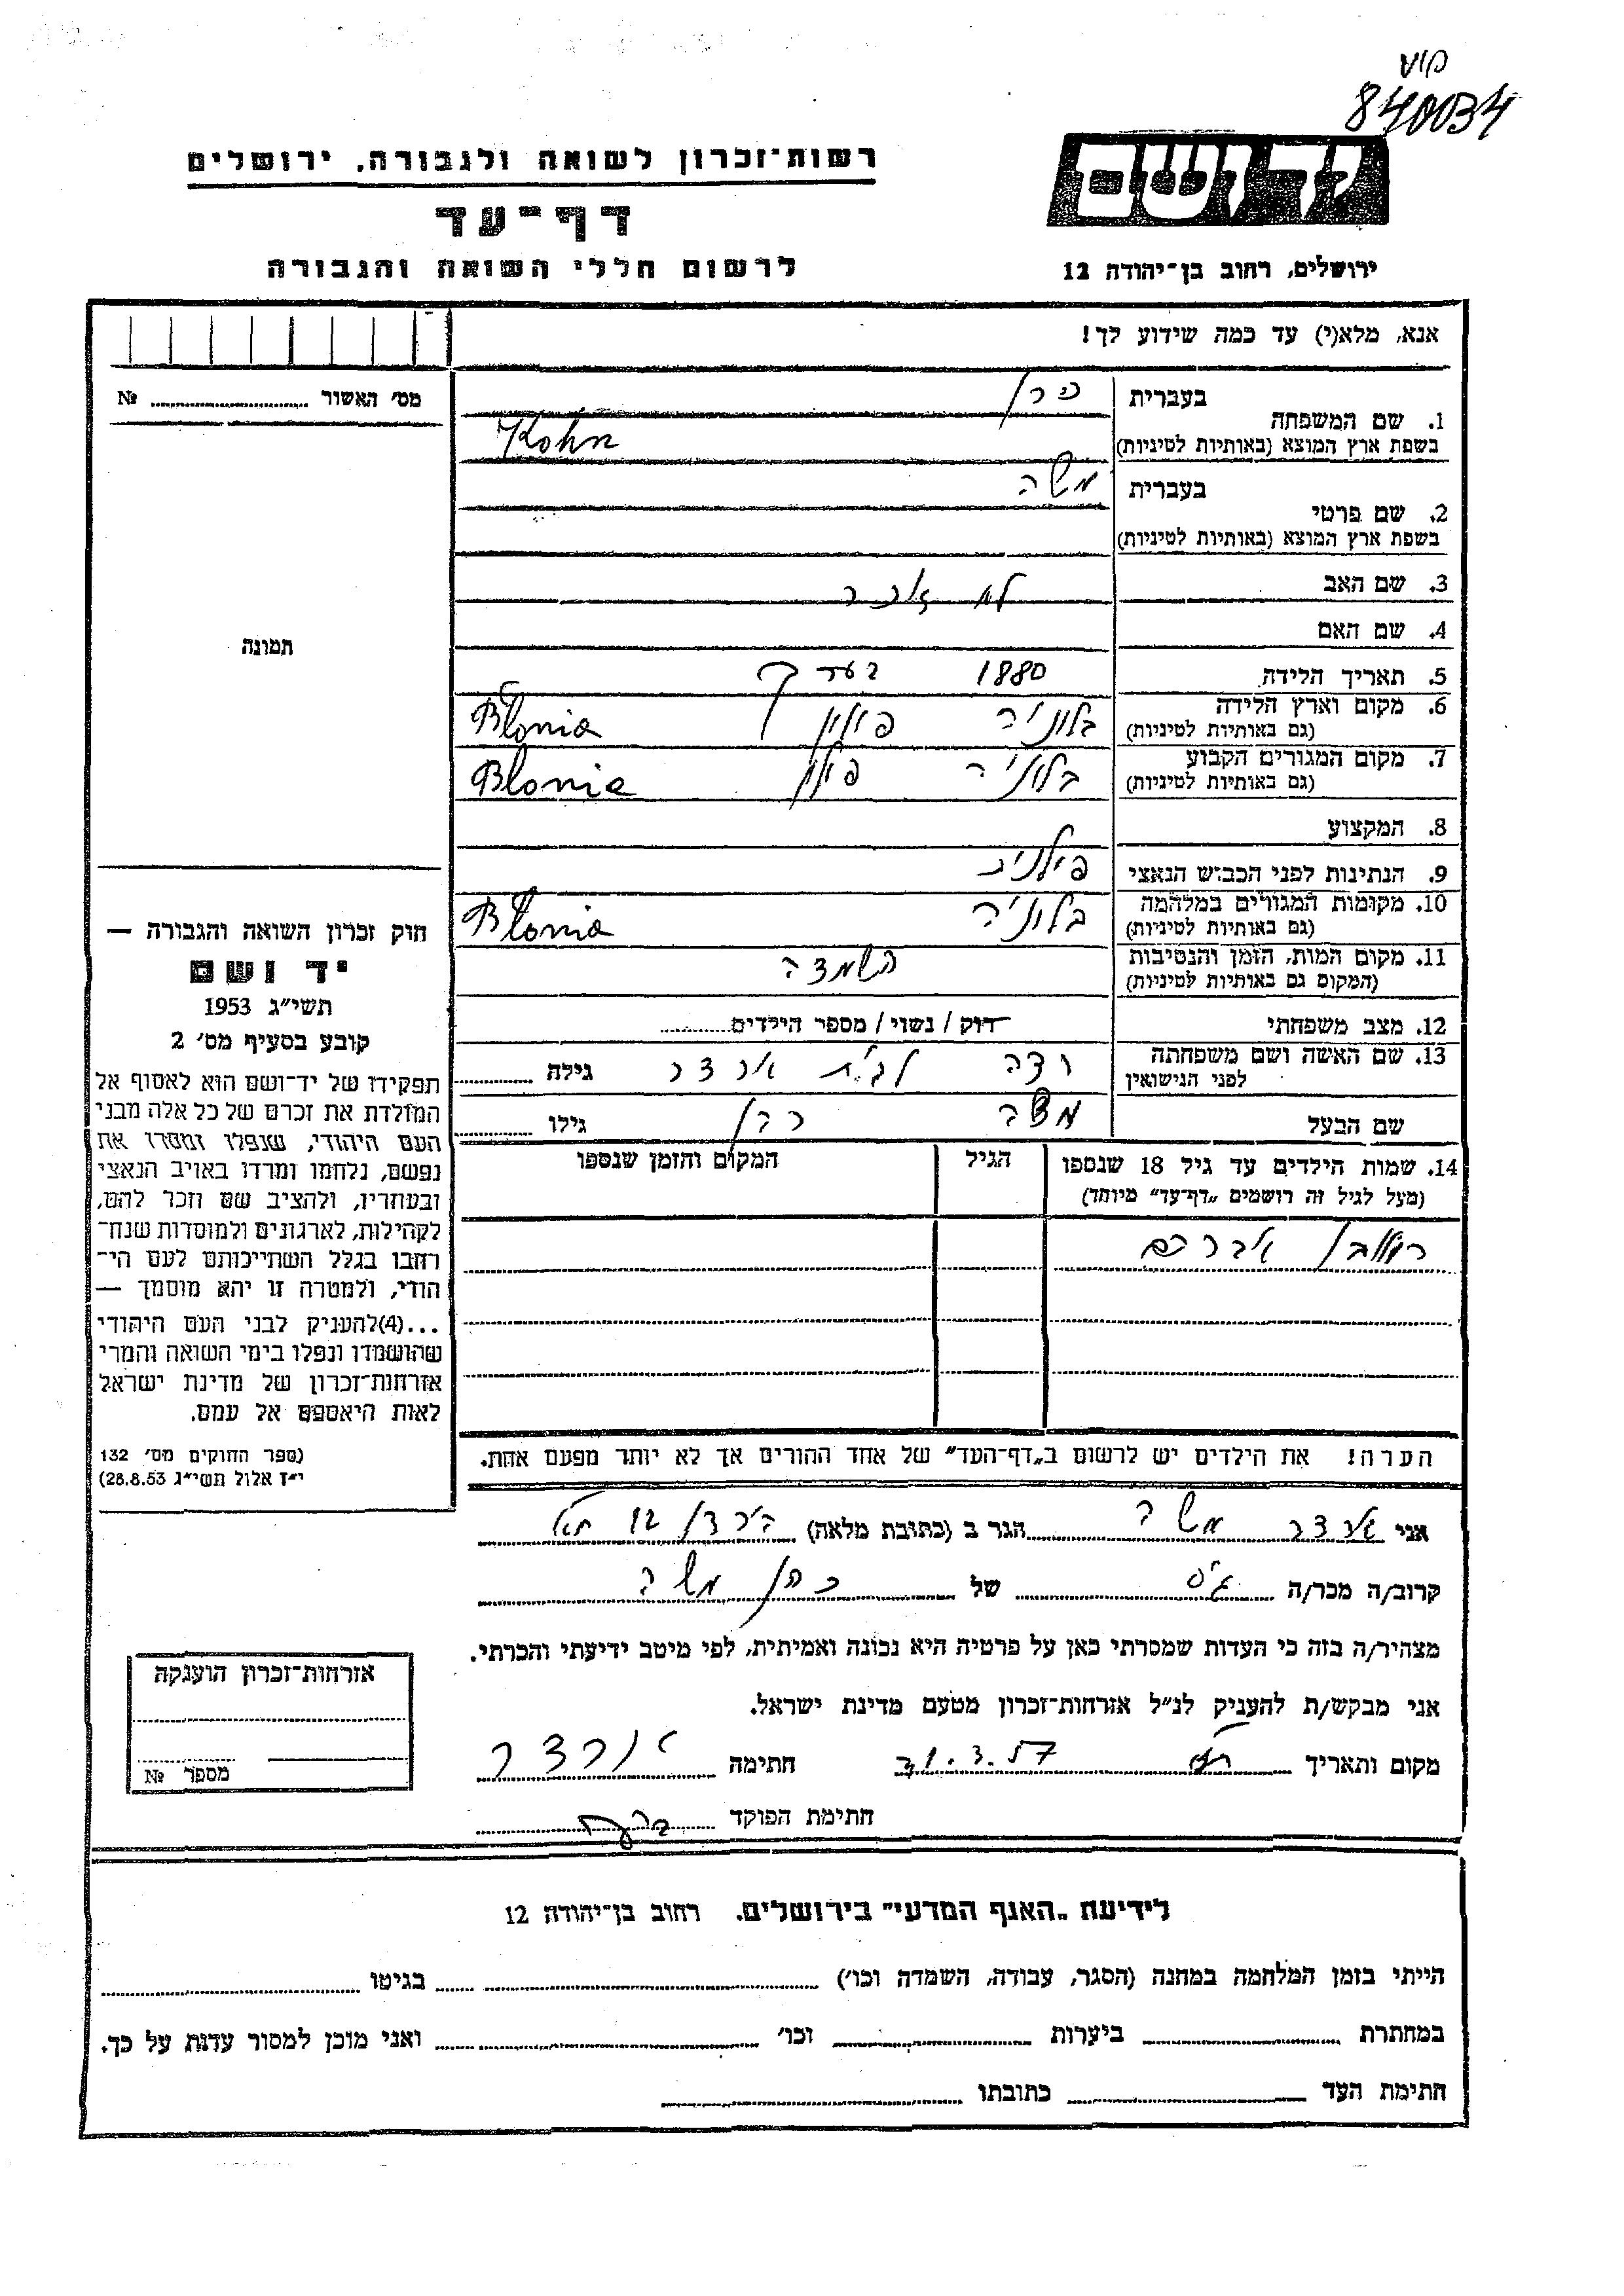 840034
רשות־זכרון לשואה ולגבורה. ירושלים
יד ושם
דף־עד
לרשום חללי השואה והגבורה
ירושלים, רחוב בן־יהודה 12
אנא, מלא(י) עד כמה שידוע לך!
מס׳ האשור № 
1. שם המשפחה בעברית כהן
בשפת ארץ המוצא (באותיות לטיניות) Kohn
2. שם פרטי בעברית משה
בשפת ארץ המוצא (באותיות לטיניות)
3. שם האב לא זוכר
4. שם האם
5. תאריך הלידה 1880 בערך
6. מקום וארץ הלידה בלוניה פולין Blonia
(גם באותיות לטיניות)
7. מקום המגורים הקבוע בלוניה פולין Blonia
(גם באותיות לטיניות)
8. המקצוע
9. הנתינות לפני הכבוש הנאצי פולנית
10. מקומות המגורים במלחמה בלוניה Blonia
(גם באותיות לטיניות)
11. מקום המות, הזמן והנסיבות השמדה
(המקום גם באותיות לטיניות)
12. מצב משפחתי רווק / נשוי / מספר הילדים
13. שם האשה ושם משפחתה לבית גילה
לפני הנישואין
שם הבעל משה כהן גילו
14. שמות הילדים עד גיל 18 שנספו הגיל המקום והזמן שנספו
(מעל לגיל זה רושמים „דף־עד” מיוחד)
ראובן אברהם
הערה! את הילדים יש לרשום ב„דף־העד” של אחד ההורים אך לא יותר מפעם אחת.
תמונה
חוק זכרון השואה והגבורה —
יד ושם
תשי״ג 1953
קובע בסעיף מס׳ 2
תפקידו של יד־ושם הוא לאסוף אל
המולדת את זכרם של כל אלה מבני
העם היהודי, שנפלו ומסרו את
נפשם, נלחמו ומרדו באויב הנאצי
ובעוזריו, ולהציב שם וזכר להם,
לקהילות, לארגונים ולמוסדות שנח־
רחבו בגלל השתייכותם לעם הי־
הודי, ולמטרה זו יהא מוסמך —
...(4)להעניק לבני העם היהודי
שהושמדו ונפלו בימי השואה והמרי
אזרחות־זכרון של מדינת ישראל
לאות היאספם אל עמם.
(ספר החוקים מס׳ 132
י״ז אלול תשי״ג 28.8.53)
אני משה הגר ב (כתובת מלאה) 12
קרוב/ה מכר/ה גיס של כהן משה
מצהיר/ה בזה כי העדות שמסרתי כאן על פרטיה היא נכונה ואמיתית, לפי מיטב ידיעתי והכרתי.
אני מבקש/ת להעניק לנ״ל אזרחות־זכרון מטעם מדינת ישראל.
מקום ותאריך 31.3.57 חתימה
חתימת הפוקד
אזרחות־זכרון הוענקה
מספר №
לידיעת „האגף המדעי” בירושלים. רחוב בן־יהודה 12
הייתי בזמן המלחמה במחנה (הסגר, עבודה, השמדה וכו׳) בגיטו
במחתרת ביערות וכו׳ ואני מוכן למסור עדות על כך.
חתימת העד כתובתו